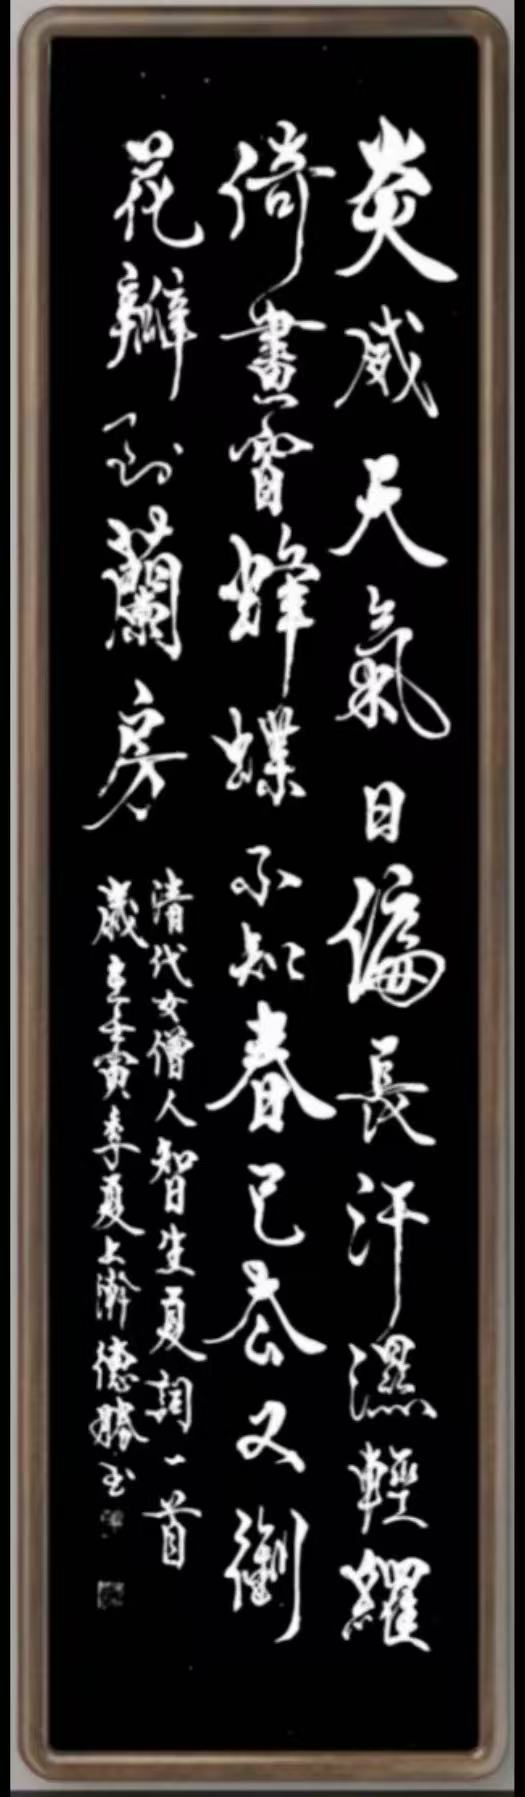 炎威天氣日偏長汗濕輕羅
倚畫窗蜂蝶不知春已去又銜
花瓣到蘭房
清代女僧人智生夏詞一首
歲在壬寅季夏上澣德勝书